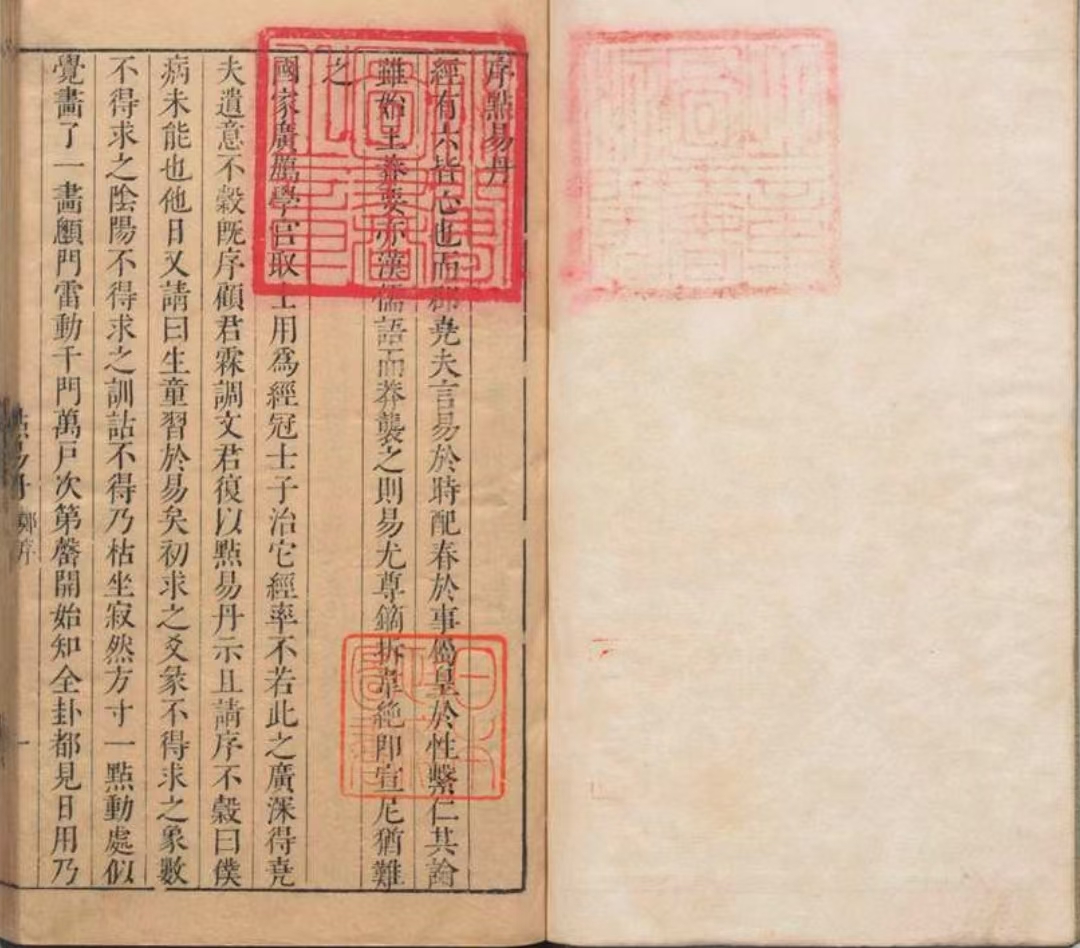 序點易丹
經有六皆心也而邵堯夫言易於時配春於事屬皇於性繫仁其論
雖始王莽要亦漢儒語而莽襲之則易尤尊鏑拆韋絶即宣尼猶難
之
國家廣厲學官取士用爲經冠士子治它經率不若此之廣深得堯
夫遺意不穀既序顧君霖調文君復以點易丹示且請序不穀曰僕
病未能也他日又請曰生童習於易矣初求之爻彖不得求之象數
不得求之陰陽不得求之訓詁不得乃枯坐寂然方寸一點動處似
覺畫了一畫顧門雷動千門萬戶次第罄開始知全卦都見日用乃
點易丹 鄭序 一